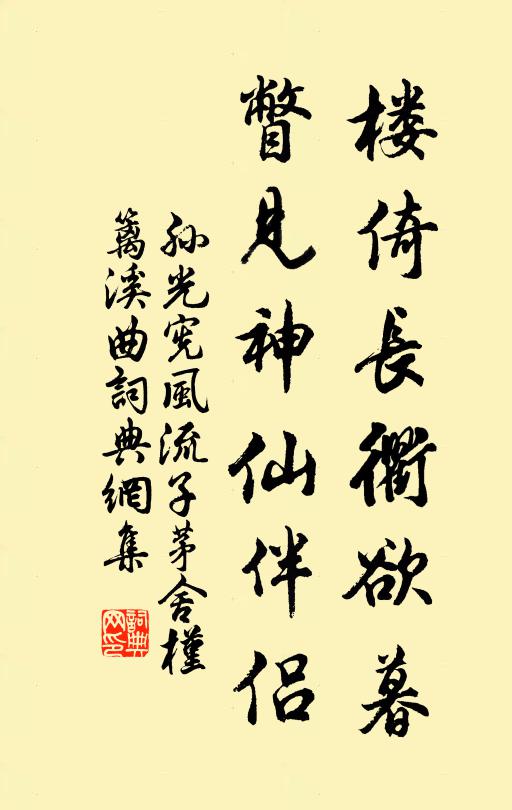 楼倚長衢欲暮
瞥見神仙伴侣
孙光宪風流子茅舍槿
篱溪曲詞典網集
詞典网印